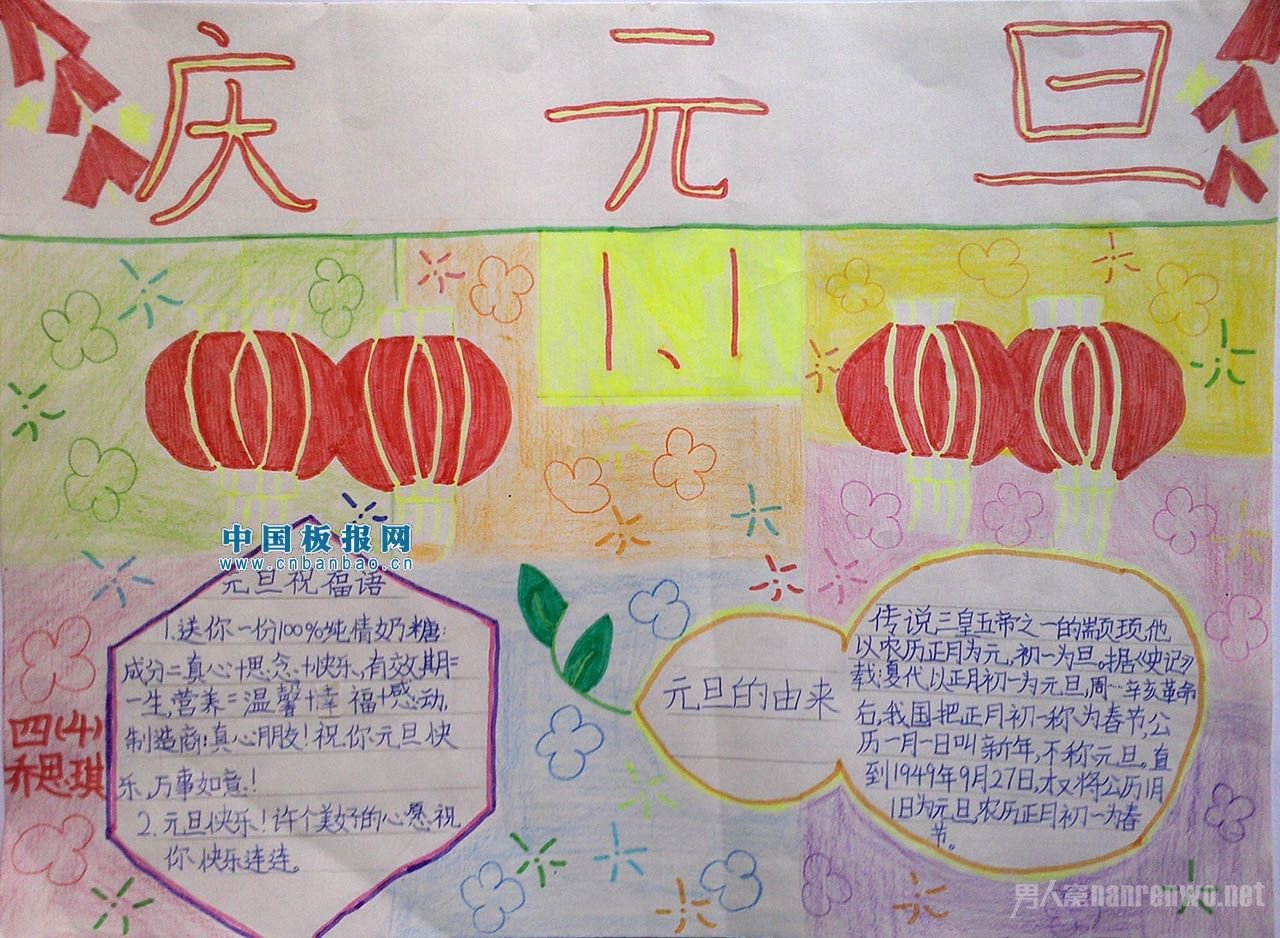 庆元旦
1、1
中国板报网
www.cnbanbao.cn
元旦祝福语
1.送你一份100%纯情奶糖:
成分=真心+思念+快乐,有效期=
一生,营养=温馨+幸福+感动,
制造商:真心朋友!祝你元旦快
乐,万事如意!
2.元旦快乐!许个美好的心愿祝
你快乐连连。
四(4)
乔思琪
元旦的由来
传说三皇五帝之一的颛顼,他
以农历正月为元,初一为旦。据《史记》
载:夏代以正月初一为元旦,周…辛亥革命
后,我国把正月初一称为春节,公
历一月一日叫新年,不称元旦。直
到1949年9月27日,才又将公历1月
1日为元旦,农历正月初一为春
节。
男人窝nanrenwo.net